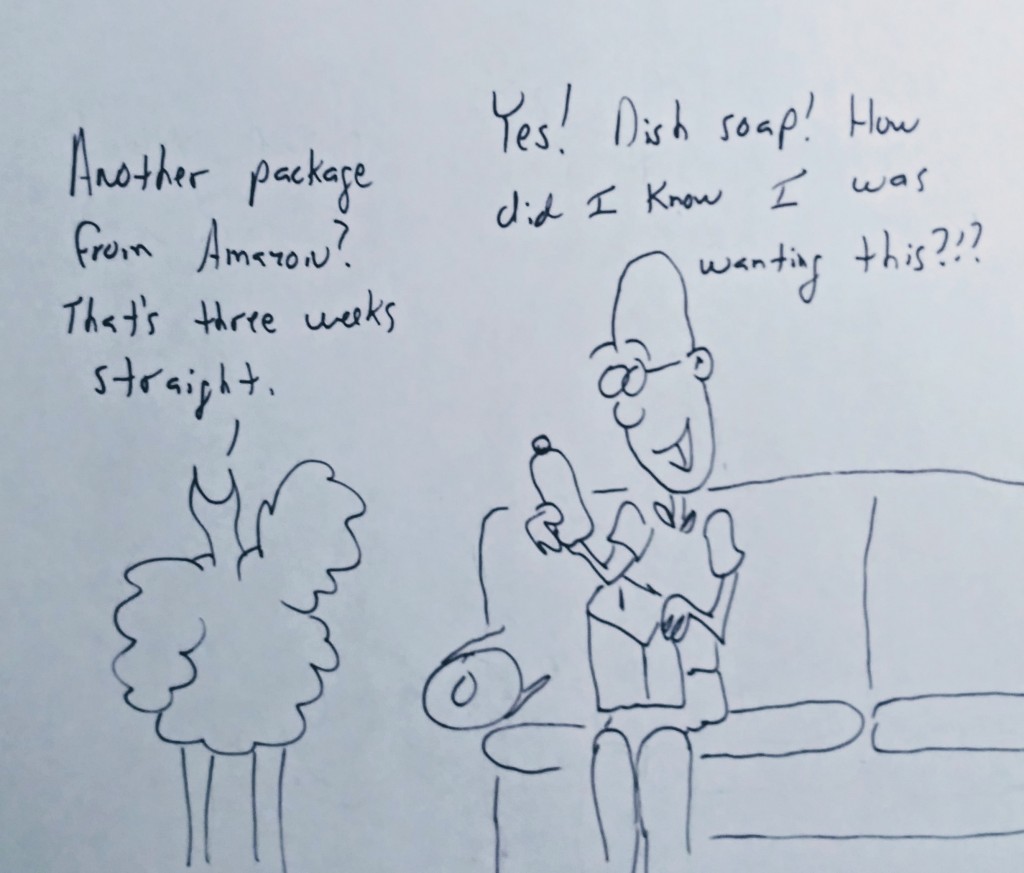 Another package
from Amazon?
That's three weeks
straight.
Yes! Dish soap! How
did I know I was
wanting this?!?